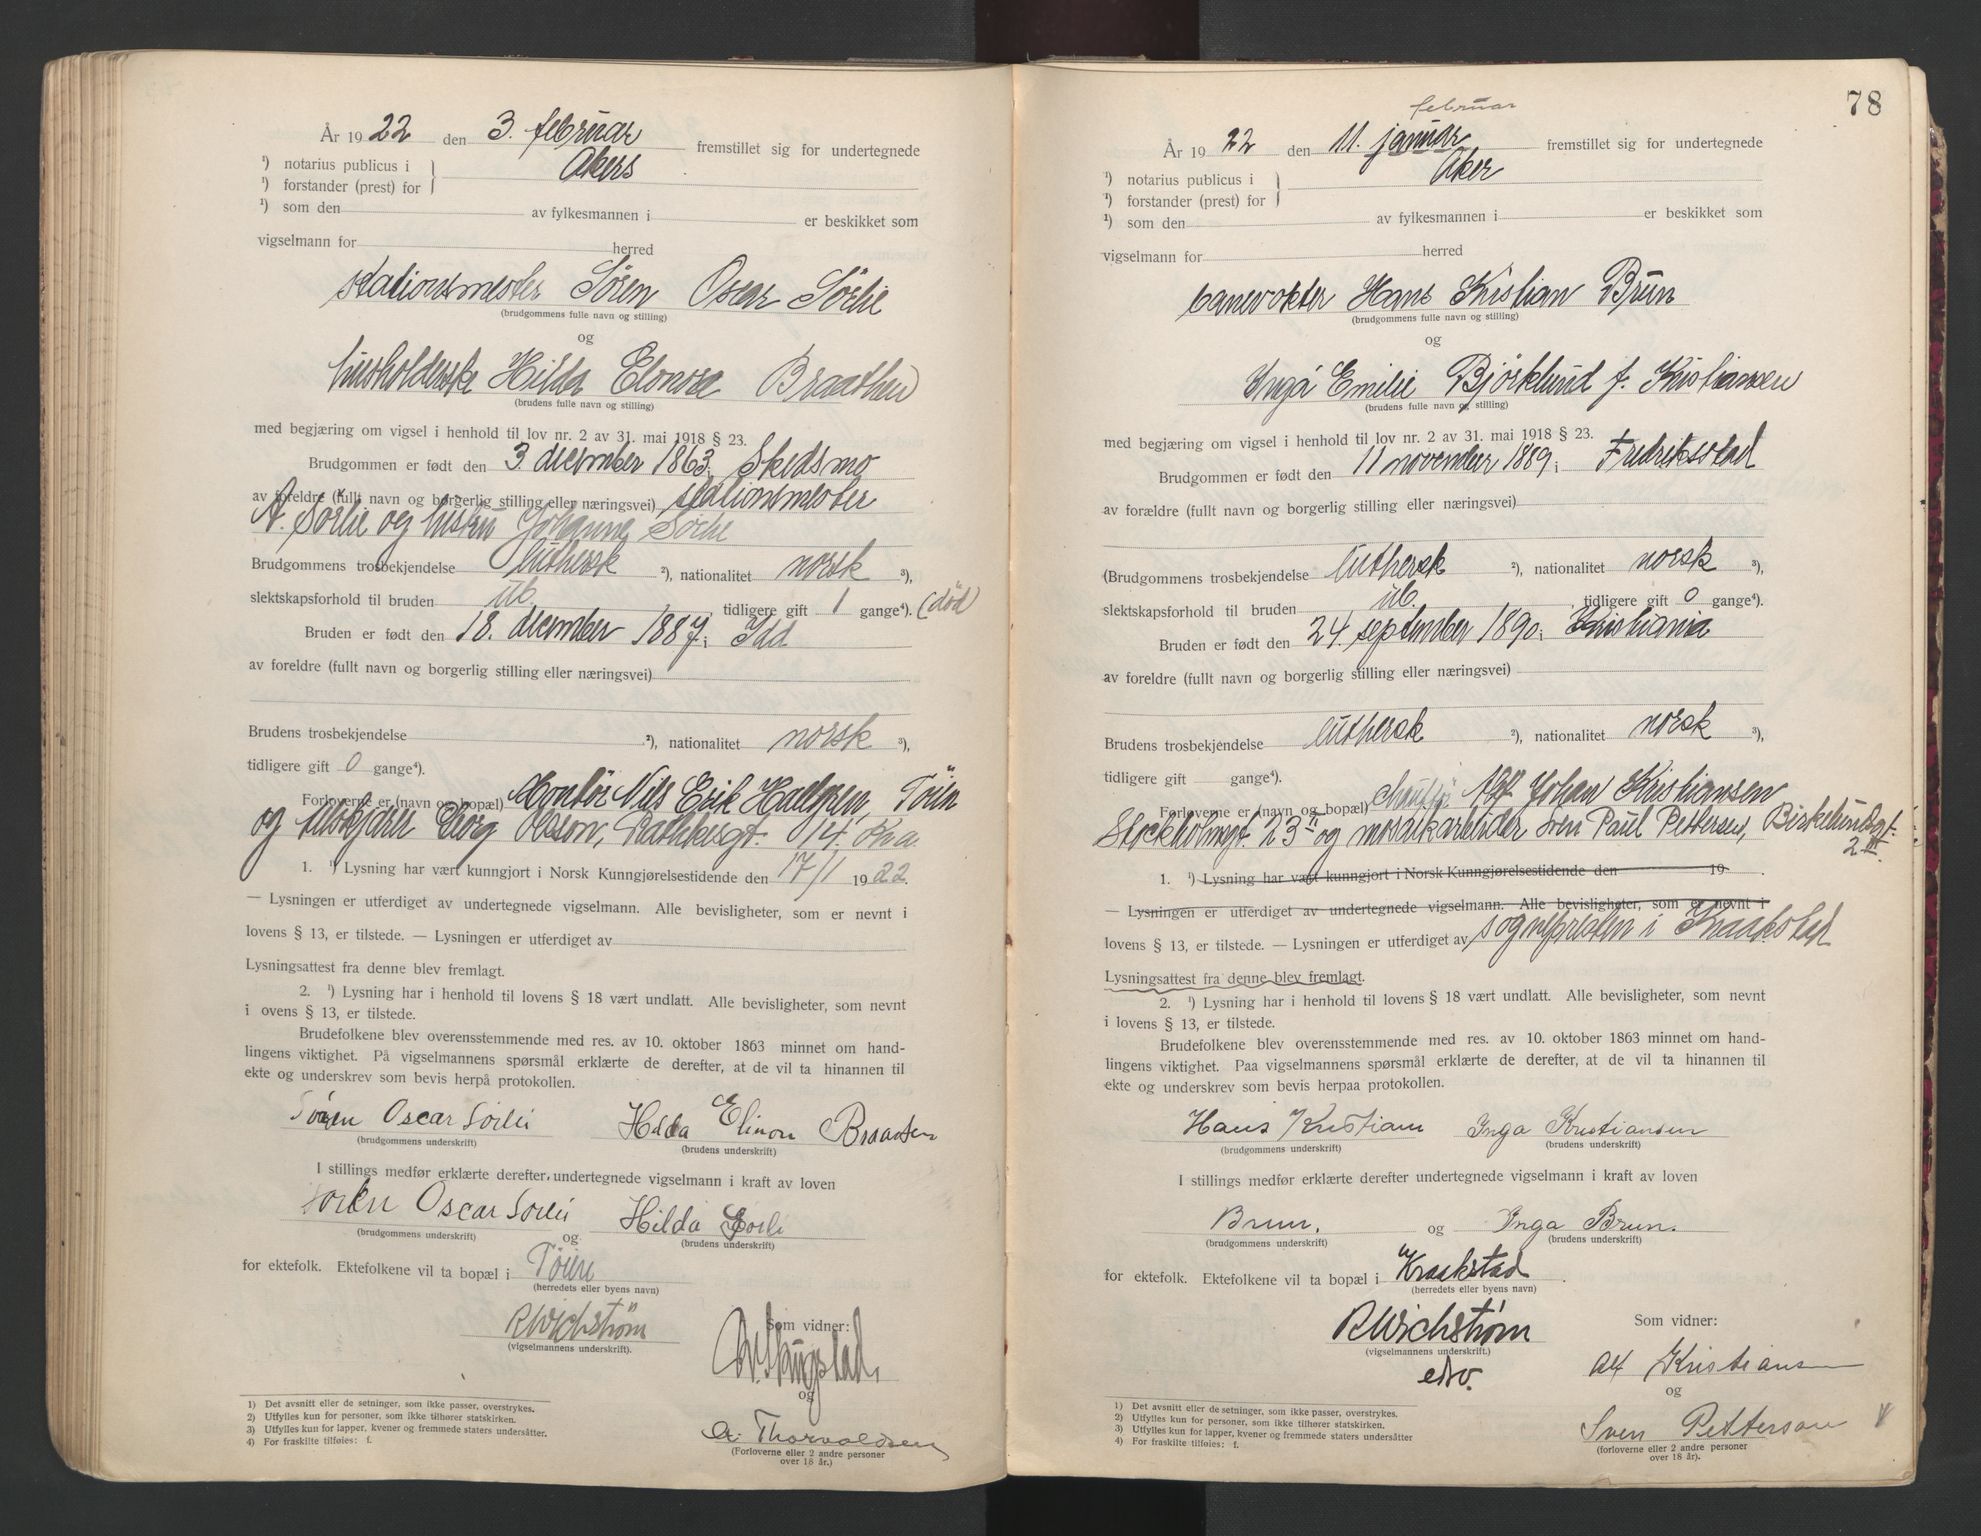 År 1922 den 3. februar fremstillet sig for undertegnede
¹) notarius publicus i } Akers
¹) forstander (prest) for
¹) som den av fylkesmannen i er beskikket som
vigselmann for herred
stationsmester Sören Oscar Sörlie
(brudgommens fulle navn og stilling)
og
husholderske Hilda Elonore Braathen
(brudens fulle navn og stilling)
med begjæring om vigsel i henhold til lov nr. 2 av 31. mai 1918 § 23.
Brudgommen er født den 3 december 1863 i Skedsmo
av foreldre (fullt navn og borgerlig stilling eller næringsvei) stationsmester
A. Sörlie og hustru Johanne Sörlie
Brudgommens trosbekjendelse luthersk ²), nationalitet norsk ³),
slektskapsforhold til bruden ub. , tidligere gift 1 gange⁴). (död)
Bruden er født den 18. december 1887 i Idd
av foreldre (fullt navn og borgerlig stilling eller næringsvei)
Brudens trosbekjendelse ²), nationalitet norsk ³),
tidligere gift 0 gange⁴).
Forloverne er (navn og bopæl) Montör Nils Erik Hallgren, Töien
og Georg Olsson, 14. Kra.
1. ¹) Lysning har vært kunngjort i Norsk Kunngjørelsestidende den 17/1 1922.
— Lysningen er utferdiget av undertegnede vigselmann. Alle bevisligheter, som er nevnt i
lovens § 13, er tilstede. — Lysningen er utferdiget av
Lysningsattest fra denne blev fremlagt.
2. ¹) Lysning har i henhold til lovens § 18 vært undlatt. Alle bevisligheter, som nevnt
i ovens § 13, er tilstede.
Brudefolkene blev overensstemmende med res. av 10. oktober 1863 minnet om hand-
lingens viktighet. På vigselmannens spørsmål erklærte de derefter, at de vil ta hinannen til
ekte og underskrev som bevis herpå protokollen.
Søren Oscar Sørlie Hilda Elinor Braathen
(brudgommens underskrift) (brudens underskrift)
I stillings medfør erklærte derefter undertegnede vigselmann i kraft av loven
Søren Oscar Sørlie Hilda Sørli
(brudgommens underskrift) og (brudens underskrift)
for ektefolk. Ektefolkene vil ta bopæl i Töien
(herredets eller byens navn)
R Wichstrøm Som vidner:
(vigselmannens underskrift).
og
A. Thorvaldsen
(Forloverne eller 2 andre personer
over 18 år.)
1) Det avsnitt eller de setninger, som ikke passer, overstrykes.
2) Utfylles kun for personer, som ikke tilhører statskirken.
3) Utfylles kun for lapper, kvener og fremmede staters undersåtter.
4) For fraskilte tilføies: f.
78
februar
År 1922 den 11. januar fremstillet sig for undertegnede
¹) notarius publicus i } Aker
¹) forstander (prest) for
¹) som den av fylkesmannen i er beskikket som
vigselmann for herred
banevokter Hans Kristian Brun
(brudgommens fulle navn og stilling)
og
Inga Emilie Björklund f. Kristiansen
(brudens fulle navn og stilling)
med begjæring om vigsel i henhold til lov nr. 2 av 31. mai 1918 § 23.
Brudgommen er født den 11 november 1889 i Fredriksstad
av forældre (fullt navn og borgerlig stilling eller næringsvei)
(Brudgommens trosbekjendelse luthersk ²), nationalitet norsk ³),
slektskapsforhold til bruden ub. , tidligere gift 0 gange⁴).
Bruden er født den 24. september 1890 i Kristiania
av foreldre (fullt navn og borgerlig stilling eller næringsvei)
Brudens trosbekjendelse luthersk ²), nationalitet norsk ³),
tidligere gift gange⁴).
Forloverne er (navn og bopæl) Alf Johan Kristiansen
Stockholmsgt. 23 II og mosaikarbeider Sven Paul Pettersen, Birkelundsgt.
2 III.
1. ¹) Lysning har vært kunngjort i Norsk Kunngjørelsestidende den 19
— Lysningen er utferdiget av undertegnede vigselmann. Alle bevisligheter, som er nevnt i
lovens § 13, er tilstede. — Lysningen er utferdiget av sognepresten i Kraakstad
Lysningsattest fra denne blev fremlagt.
2. ¹) Lysning har i henhold til lovens § 18 vært undlatt. Alle bevisligheter, som nevnt
i lovens § 13, er tilstede.
Brudefolkene blev overensstemmende med res. av 10. oktober 1863 minnet om hand-
lingens viktighet. Paa vigselmannens spørsmål erklærte de derefter, at de vil ta hinannen til
ekte og underskrev som bevis herpaa protokollen.
Hans Kristian Inga Kristiansen
(brudgommens underskrift) (brudens underskrift)
I stillings medfør erklærte derefter undertegnede vigselmann i kraft av loven
Brun. og Inga Brun.
(brudgommens underskrift) (brudens underskrift)
for ektefolk. Ektefolkene vil ta bopæl i Kraakstad
(herredets eller byens navn)
R Wichstrøm Som vidner:
(vigselmannens underskrift.)
Alf Kristiansen
og
Sven Petterson
(forloverne eller 2 andre personer
over 18 år).
1) Det avsnitt eller de setninger, som ikke passer, overstrykes.
2) Utfylles kun for personer, som ikke tilhører statskirken.
3) Utfylles kun for lapper, kvener og fremmede staters undersåtter
4) For fraskilte tilføies: f.